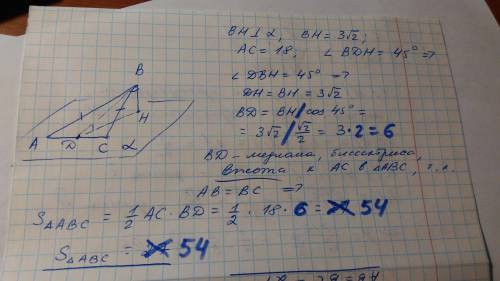 BH ⊥ α, BH = 3√2;
AC = 18; ∠ BDH = 45° ⇒
∠ DBH = 45° ⇒
DH = BH = 3√2
BD = BH / cos 45° =
= 3√2 / √2/2 = 3 • 2 = 6
BD – медиана, биссектриса,
высота к AC в ΔABC, т.к.
AB = BC ⇒
S ΔABC = 1/2 AC · BD = 1/2 · 18 • 6 = 54
S ΔABC = 54
B
H
A
D
C
α